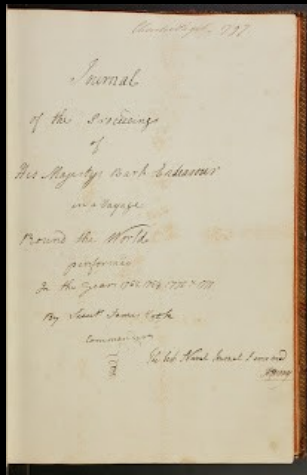 1797
Journal
of the Proceedings
of
His Majestys Bark Endeavour
in a Voyage
Round the World
performed
In the Years 1768, 1769, 1770 & 1771
By Lieut. James Cook
Commander